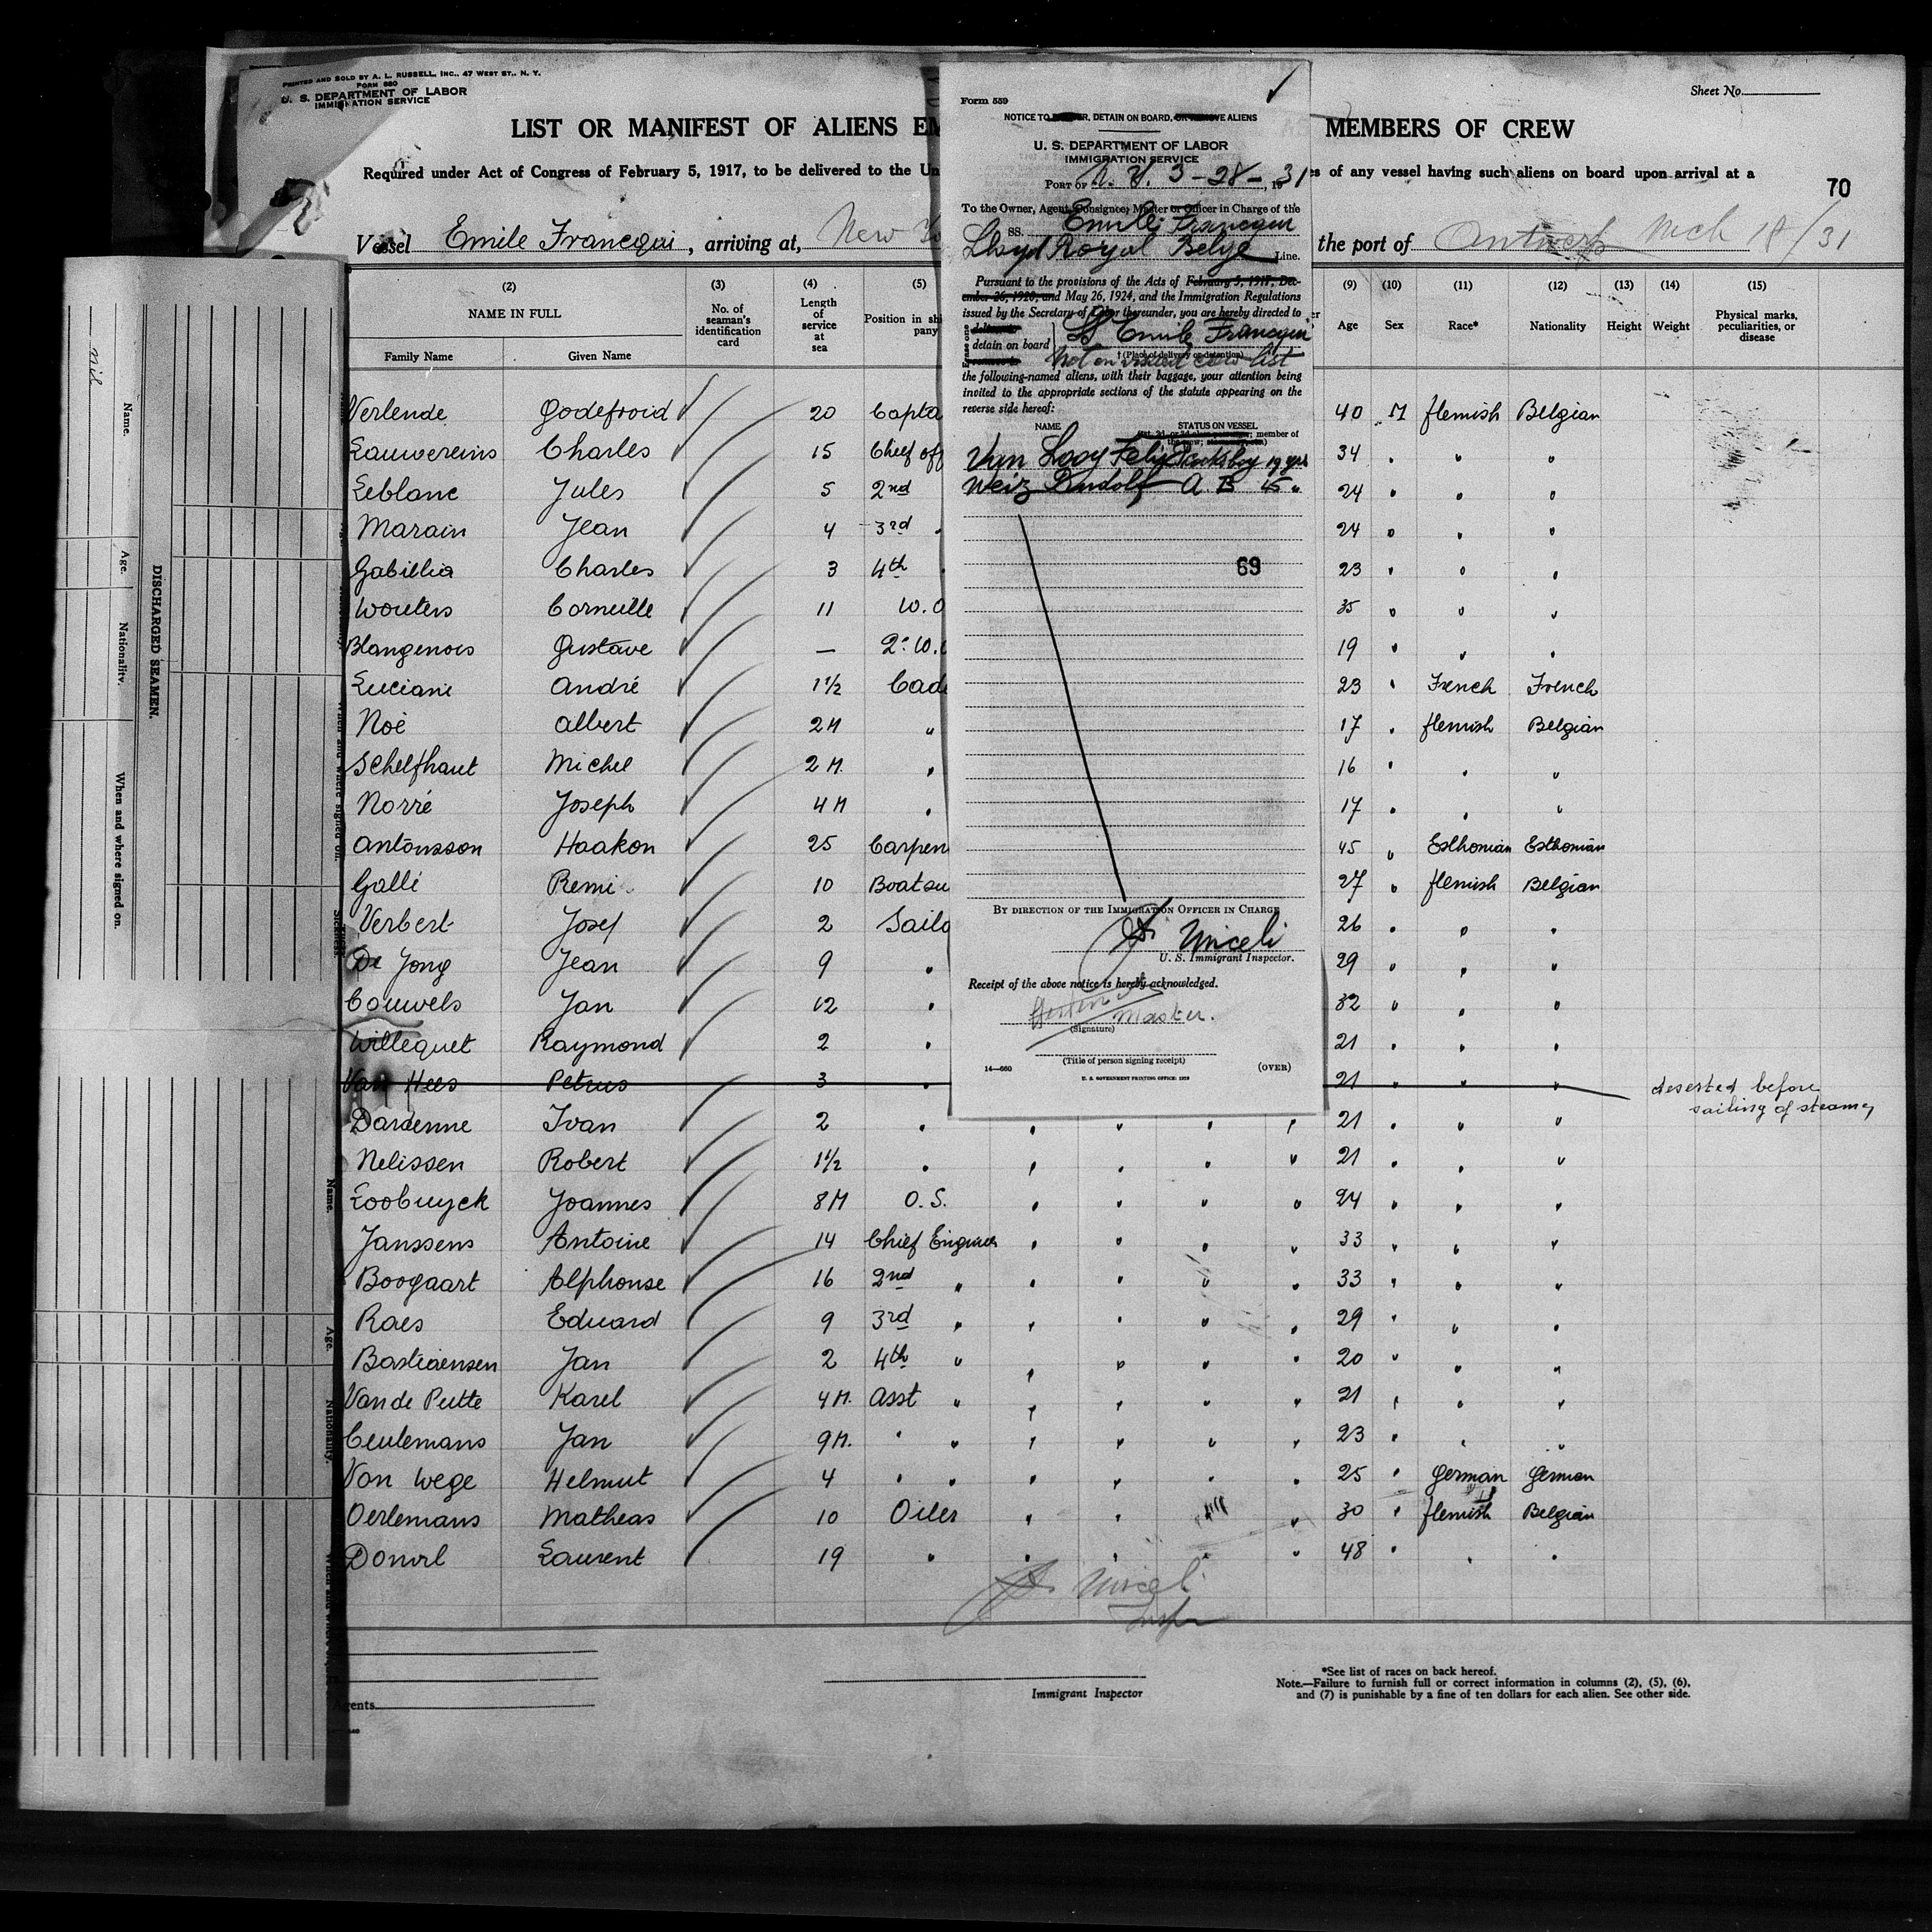 PRINTED AND SOLD BY A. L. RUSSELL, INC., 47 WEST ST., N. Y.
FORM 680
U. S. DEPARTMENT OF LABOR
IMMIGRATION SERVICE
Sheet No.
LIST OR MANIFEST OF ALIENS EM MEMBERS OF CREW
Required under Act of Congress of February 5, 1917, to be delivered to the Un s of any vessel having such aliens on board upon arrival at a
70
Vessel Emile Francqui, arriving at, New Yo the port of Antwerp Mch 18/31
(2) (3) (4) (5) (9) (10) (11) (12) (13) (14) (15)
NAME IN FULL
Family Name Given Name
No. of seaman's identification card
Length of service at sea
Position in shi pany
Age Sex Race* Nationality Height Weight Physical marks, peculiarities, or disease
Verlende Godefroid 20 Capta 40 M flemish Belgian
Lauwereins Charles 15 Chief off 34 " " "
Leblanc Jules 5 2nd 24 " " "
Marain Jean 4 3rd " 24 " " "
Gabillia Charles 3 4th " 23 " " "
Wouters Corneille 11 W.O 35 " " "
Blangenois Gustave — 2e W. 19 " " "
Luciani André 1 1/2 Cad 23 " French French
Noë Albert 2M " 17 " flemish Belgian
Schelfhaut Michel 2M. " 16 " " "
Norré Joseph 4M " 17 " " "
Antonsson Haakon 25 Carpen 45 " Esthonian Esthonian
Gallé Remi 10 Boatsw 27 " flemish Belgian
Verbert Josef 2 Sailo 26 " " "
De Jong Jean 9 " 29 " " "
Cauwels Jan 12 " 32 " " "
Willequet Raymond 2 " 21 " " "
Van Hees Petrus 3 " 21 " " " deserted before
sailing of steamer
Dardenne Ivan 2 " " " " " 21 " " "
Nelissen Robert 1 1/2 " " " " " 21 " " "
Loobuyck Joannes 8M O.S. " " " " 24 " " "
Janssens Antoine 14 Chief Engineer " " " " 33 " " "
Boogaart Alphonse 16 2nd " " " " " 33 " " "
Raes Eduard 9 3rd " " " " " 29 " " "
Bastiaensen Jan 2 4th " " " " " 20 " " "
Van de Putte Karel 4M. Asst " " " " " 21 " " "
Ceulemans Jan 9M. " " " " " " 23 " " "
Von Wege Helmut 4 " " " " " " 25 " German German
Oerlemans Matheas 10 Oiler " " " 30 " flemish Belgian
Laurent 19 " " " " " 48 " " "
Miceli
Insp
Immigrant Inspector
Agents
*See list of races on back hereof.
Note.—Failure to furnish full or correct information in columns (2), (5), (6),
and (7) is punishable by a fine of ten dollars for each alien. See other side.
Form 559
NOTICE TO DELIVER, DETAIN ON BOARD, OR REMOVE ALIENS
U. S. DEPARTMENT OF LABOR
IMMIGRATION SERVICE
PORT OF N. Y. 3-28-1931
To the Owner, Agent, Consignee, Master or Officer in Charge of the
SS. Emile Francqui
Lloyd Royal Belge Line.
Pursuant to the provisions of the Acts of February 5, 1917, Dec-
ember 26, 1920, and May 26, 1924, and the Immigration Regulations
issued by the Secretary of Labor thereunder, you are hereby directed to
Erase one
detain on board
SS Emile Francqui
† (Place of delivery or detention)
Not on visaed crew list
the following-named aliens, with their baggage, your attention being
invited to the appropriate sections of the statute appearing on the
reverse side hereof:
NAME STATUS ON VESSEL
(1st, 2d, or 3d class passenger; member of
the crew;
Van Looy Felix 19 yrs
Weiz Rudolf A B 45 "
69
BY DIRECTION OF THE IMMIGRATION OFFICER IN CHARGE
Miceli
U. S. Immigrant Inspector.
Receipt of the above notice is hereby acknowledged.
Master.
(Signature)
(Title of person signing receipt)
14—660 U. S. GOVERNMENT PRINTING OFFICE: 1929 (OVER)
nil
DISCHARGED SEAMEN.
Name.
Age.
Nationality.
When and where signed on.
Name.
Age.
Nationality.